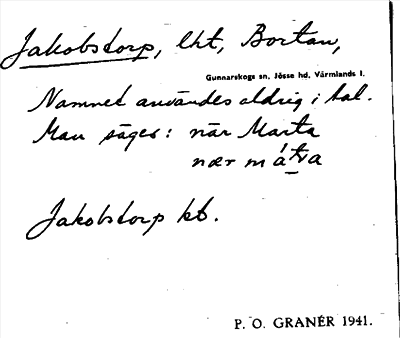 Jakobstorp, lht, Bortan,
Gunnarskogs sn, Jösse hd, Värmlands l.
Namnet användes aldrig i tal.
Man säges: när Marta
nær mátva
Jakobstorp kb.
P. O. GRANÉR 1941.